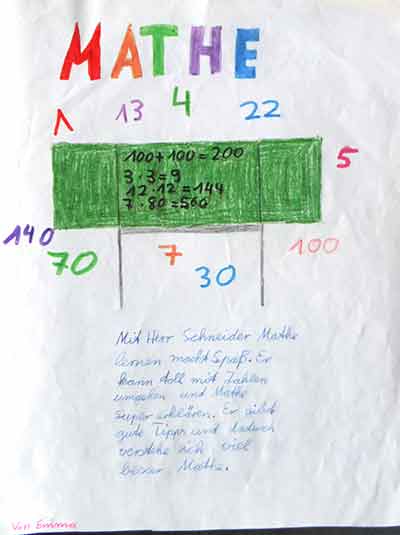 MATHE
1 13 4 22
100+100=200
3·3=9
12·12=144
7·80=560
5
140
70 7 30 100
Mit Herr Schneider Mathe
lernen macht Spaß. Er
kann toll mit Zahlen
umgehen und Mathe
super erklären. Er gibt
gute Tipps und dadurch
verstehe ich viel
besser Mathe.
Von Emma